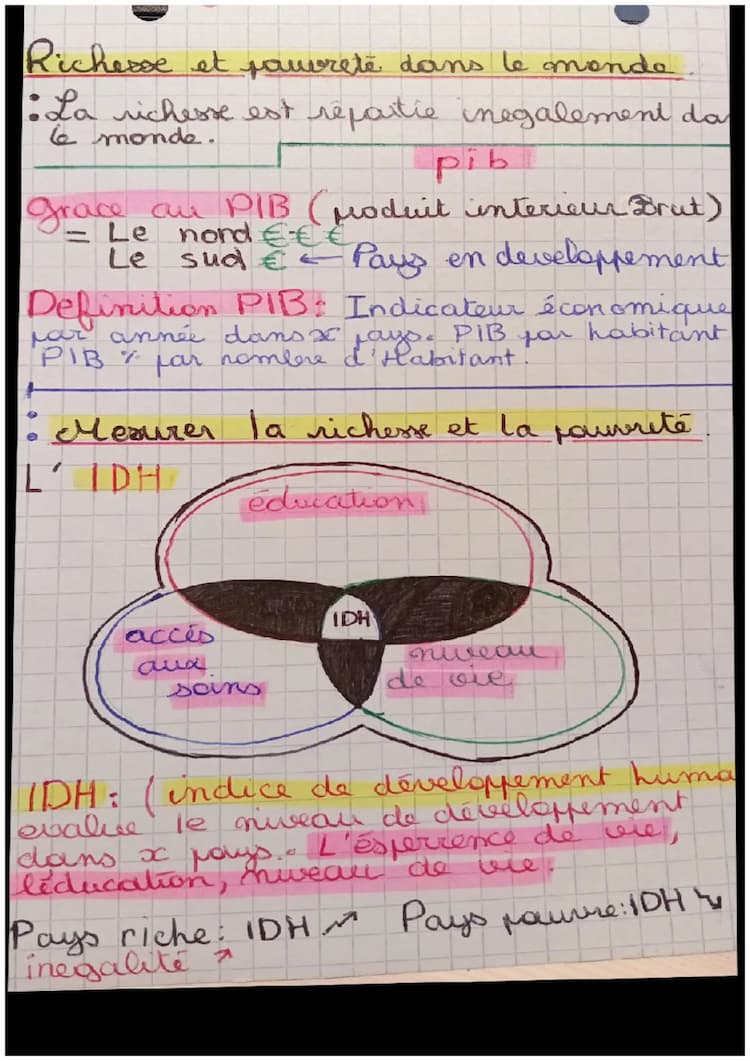 Richesse et pauvreté dans le monde.
: La richesse est répartie inegalement da
le monde.
pib
Grace au PIB (produit interieur Brut)
= Le nord €€€
Le sud € ← Pays en developpement
Definition PIB: Indicateur économique
par année dans x pays. PIB par habitant
PIB % par nombre d'Habitant.
: Mesurer la richesse et la pauvreté.
L' IDH
éducation
IDH
accés
aux
soins
niveau
de vie
IDH: (indice de développement huma
evalue le niveau de développement
dans x pays. L'ésperence de vie,
l'éducation, niveau de vie.
Pays riche: IDH ↗ Pays pauvre: IDH ↘
inegalité ↗